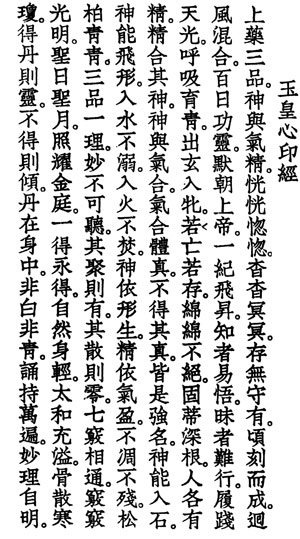 玉皇心印經
上藥三品。神與氣精。恍恍惚惚。杳杳冥冥。存無守有。頃刻而成。迴
風混合。百日功靈。默朝上帝。一紀飛昇。知者易悟。昧者難行。履踐
天光。呼吸育青。出玄入牝。若亡若存。綿綿不絕。固蒂深根。人各有
精。精合其神。神與氣合。氣合體真。不得其真。皆是強名。神能入石。
神能飛形。入水不溺。入火不焚。神依形生。精依氣盈。不凋不殘。松
柏青青。三品一理。妙不可聽。其聚則有。其散則零。七竅相通。竅竅
光明。聖日聖月。照耀金庭。一得永得。自然身輕。太和充溢。骨散寒
瓊。得丹則靈。不得則傾。丹在身中。非白非青。誦持萬遍。妙理自明。